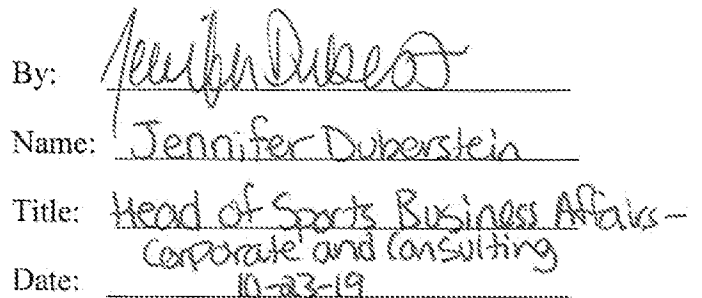 By: Jennifer Duberst
Name: Jennifer Duberstein
Title: Head of Sports Business Affairs-
Corporate and Consulting
Date: 10-23-19